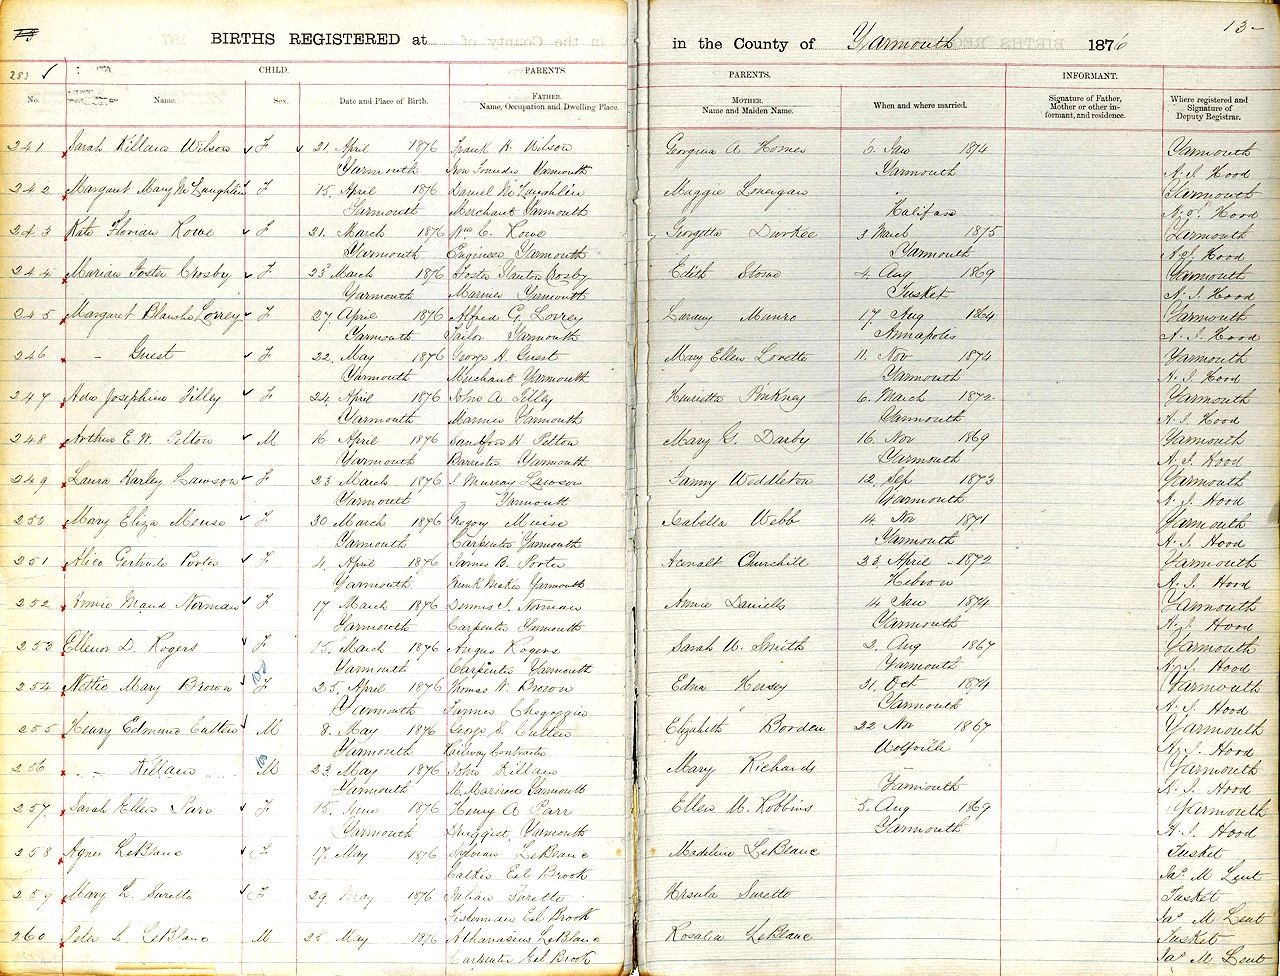 BIRTHS REGISTERED at
in the County of Yarmouth 1876
13-
283 ✓
CHILD. PARENTS. PARENTS. INFORMANT.
No. Name. Sex. Date and Place of Birth. FATHER. Name, Occupation and Dwelling Place. MOTHER. Name and Maiden Name. When and where married. Signature of Father, Mother or other informant, and residence. Where registered and Signature of Deputy Registrar.
241 Sarah Killam Wilson F 21 April 1876 Frank H Wilson Georgina A Homer 6 Jan 1874 Yarmouth
Yarmouth Iron Founder Yarmouth Yarmouth A. J. Hood
242 Margaret Mary McLaughlin F 15 April 1876 Daniel McLaughlin Maggie Lonergan Yarmouth
Yarmouth Merchant Yarmouth Halifax A. J. Hood
243 Kate Florian Rowe F 21 March 1876 Wm C. Rowe Georgetta Durkee 3 March 1875 Yarmouth
Yarmouth Engineer Yarmouth Yarmouth A. J. Hood
244 Marian Foster Crosby F 23 March 1876 Foster Crosby Edith Stone 4 Aug 1869 Yarmouth
Yarmouth Mariner Yarmouth Tusket A. J. Hood
245 Margaret Blanche Lovrey F 27 April 1876 Alfred G Lovrey Munro 17 Aug 1864 Yarmouth
Yarmouth Tailor Yarmouth Annapolis A. J. Hood
246 - Guest F 22 May 1876 George H Guest Mary Ellen Loretto 11 Nov 1874 Yarmouth
Yarmouth Merchant Yarmouth Yarmouth A. J. Hood
247 Ada Josephine Tilley F 24 April 1876 John A Tilley Henrietta Pinkney 6 March 1872 Yarmouth
Yarmouth Mariner Yarmouth Yarmouth A. J. Hood
248 Arthur E. W. Pelton M 16 April 1876 Sandford H Pelton Mary G. Darby 16 Nov 1869 Yarmouth
Yarmouth Barrister Yarmouth Yarmouth A. J. Hood
249 Laura Harley Lawson F 23 March 1876 J Murray Lawson Fanny Weddleton 12 Sep 1873 Yarmouth
Yarmouth - Yarmouth Yarmouth A. J. Hood
250 Mary Eliza Meuse F 30 March 1876 Gregory Muise Isabella Webb 14 Nov 1871 Yarmouth
Yarmouth Carpenter Yarmouth Yarmouth A. J. Hood
251 Alice Gertrude Porter F 4 April 1876 James B. Porter Churchill 23 April 1872 Yarmouth
Yarmouth Trunk Maker Yarmouth Hebron A. J. Hood
252 Annie Maud Norman F 17 March 1876 Dennis J. Norman Annie Daniells 14 Jan 1874 Yarmouth
Yarmouth Carpenter Yarmouth Yarmouth A. J. Hood
253 Ellenor D. Rogers F 15 March 1876 Angus Rogers Sarah W. Smith 2 Aug 1867 Yarmouth
Yarmouth Carpenter Yarmouth Yarmouth A. J. Hood
254 Nettie Mary Brown F 25 April 1876 Thomas W. Brown Edna Hersey 31 Oct 1874 Yarmouth
Yarmouth Farmer Chegoggin Yarmouth A. J. Hood
255 Henry Edmund Cutten M 8 May 1876 George S. Cutten Elizabeth Borden 22 Nov 1867 Yarmouth
Yarmouth Railway Contractor Wolfville A. J. Hood
256 - Killam M 23 May 1876 John Killam Mary Richards Yarmouth
Yarmouth M. Mariner Yarmouth Yarmouth A. J. Hood
257 Sarah Ellen Parr F 15 June 1876 Henry A Parr Ellen M. Robbins 5 Aug 1869 Yarmouth
Yarmouth Druggist Yarmouth Yarmouth A. J. Hood
258 Agnes LeBlanc F 17 May 1876 Sylvian LeBlanc Madeline LeBlanc Tusket
Eel Brook Jas M Lent
259 Mary L. Surette F 29 May 1876 Julian Surette Ursula Surette Tusket
Fisherman Eel Brook Jas M Lent
260 Peter L. LeBlanc M 25 May 1876 Athanasius LeBlanc Rosalia LeBlanc Tusket
Carpenter Eel Brook Jas M Lent